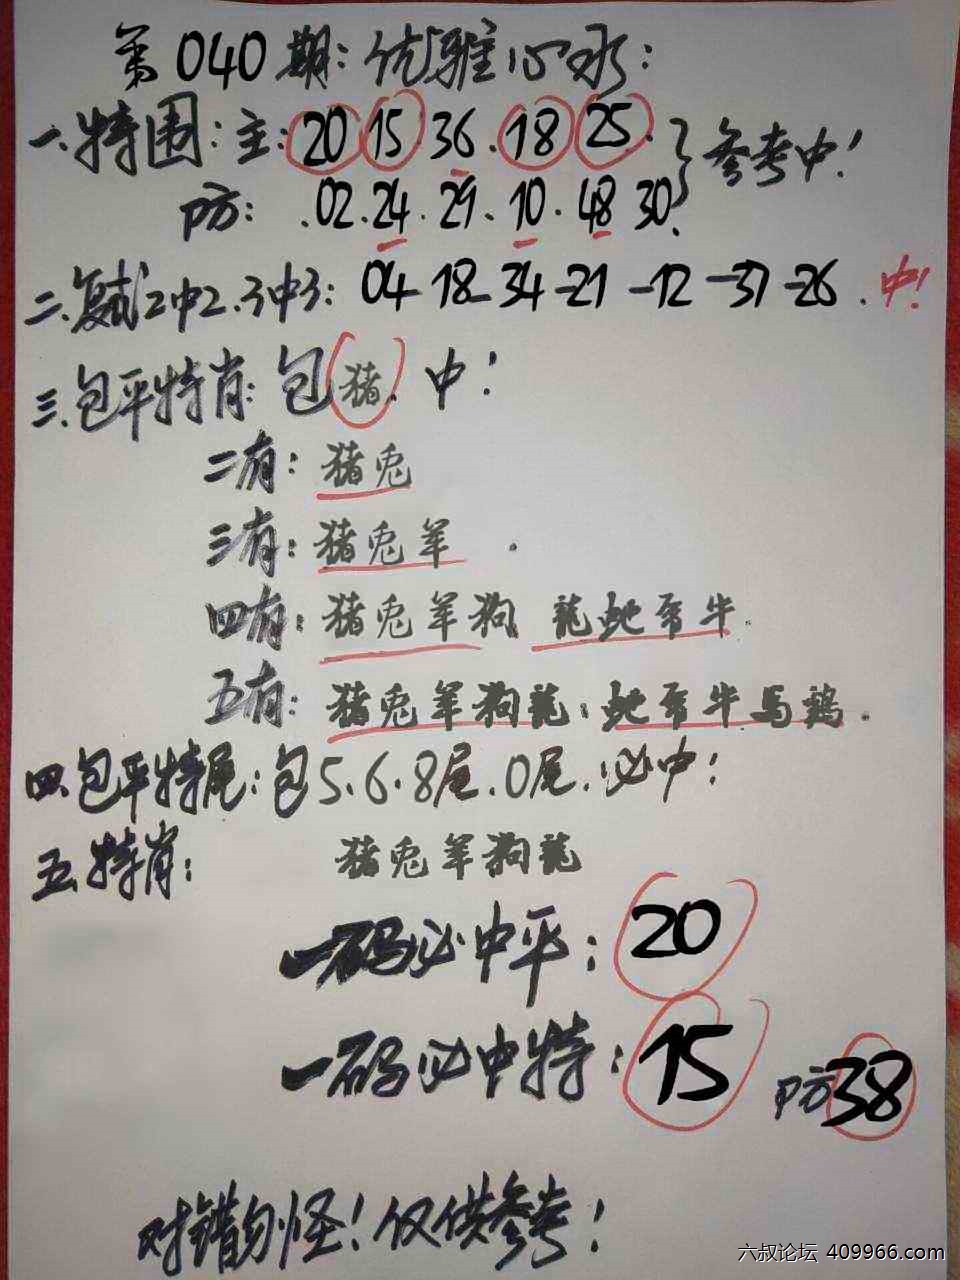 第040期:优雅心水:
一.特围:主:20 15.36.18 25.}参考中!
防:.02.24.29.10.48 30.
二.复试2中2.3中3:04-18-34-21-12-37-26.中!
三.包平特肖:包猪.中!
二有:猪兎
三有:猪兎羊.
四有:猪兎羊狗 龍蛇 牛.
五有:猪兎羊狗龍:蛇 牛馬鷄.
四.包平特尾:包5.6.8尾.0尾.必中!
五.特肖: 猪兎羊狗龍
一码必中平:20
一码必中特:15 防38
对错勿怪!仅供参考!
六叔论坛 409966.com